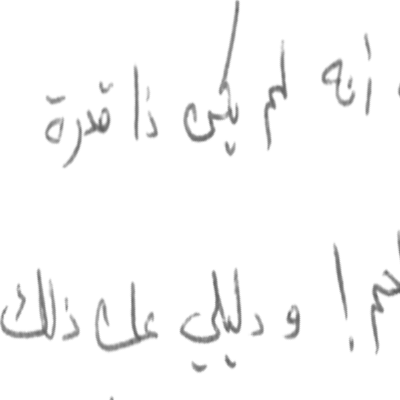 أنه لم يكن ذا قدرة
! و دليلي على ذلك